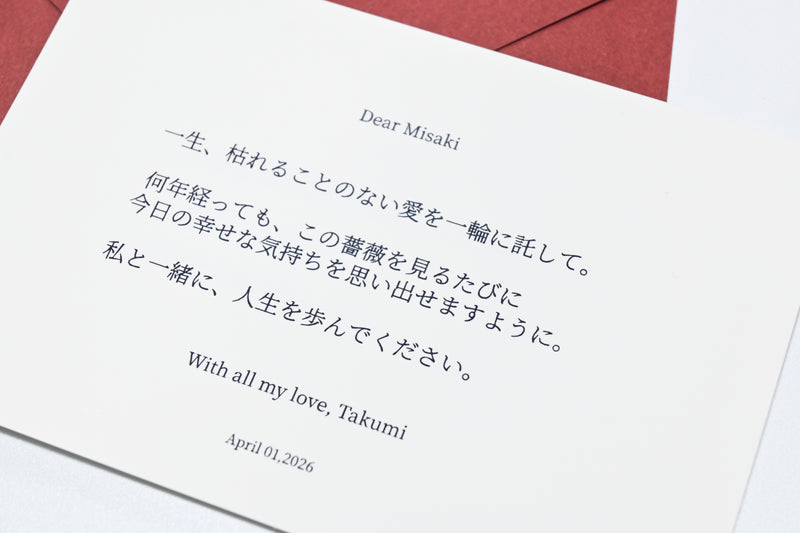 Dear Misaki
一生、枯れることのない愛を一輪に託して。
何年経っても、この薔薇を見るたびに
今日の幸せな気持ちを思い出せますように。
私と一緒に、人生を歩んでください。
With all my love, Takumi
April 01,2026